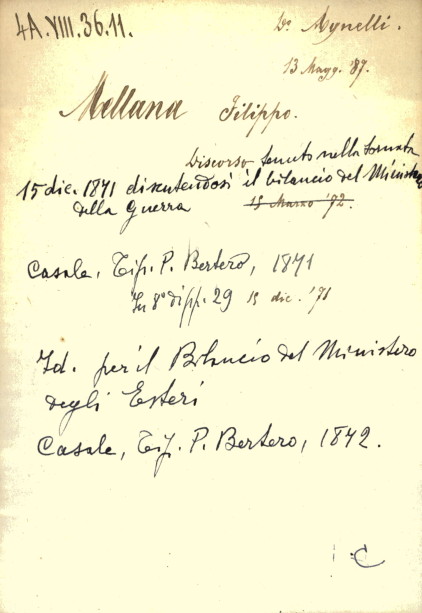 4A.VIII.36.11.
Dº Mynelli.
13 Magg. '87.
Mellana Filippo.
Discorso tenuto nella tornata
15 dic. 1871 discutendosi il bilancio del Ministero
della Guerra 15 Marzo '72.
Casale, Tip. P. Bertero, 1871
In 8º di pp. 29 15 dic. '71
Id. per il Bilancio del Ministero
degli Esteri
Casale, Tip. P. Bertero, 1872.
C